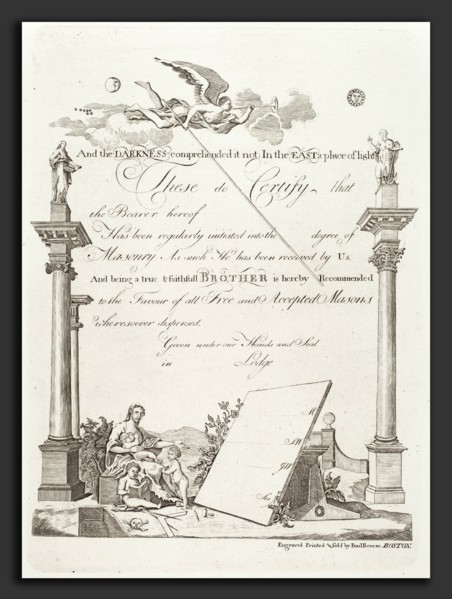 And the DARKNESS comprehended it not. In the EAST a place of light
These do Certify that
the Bearer hereof
Has been regularly initiated into the degree of
Masonry As such He has been received by Us.
And being a true & faithfull BROTHER is hereby Recommended
to the Favour of all Free and Accepted Masons
wheresoever dispersed.
Given under our Hands and Seal
in Lodge
M
SW
JW
Engraved Printed & Sold by Paul Revere. BOSTON.